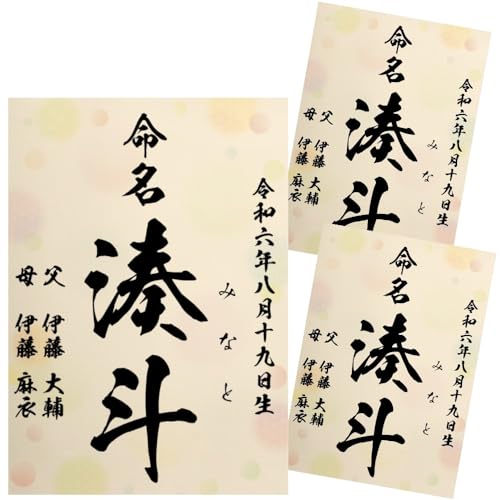 命名
湊斗
みなと
令和六年八月十九日生
父 伊藤 大輔
母 伊藤 麻衣
命名
湊斗
みなと
令和六年八月十九日生
父 伊藤 大輔
母 伊藤 麻衣
命名
湊斗
みなと
令和六年八月十九日生
父 伊藤 大輔
母 伊藤 麻衣